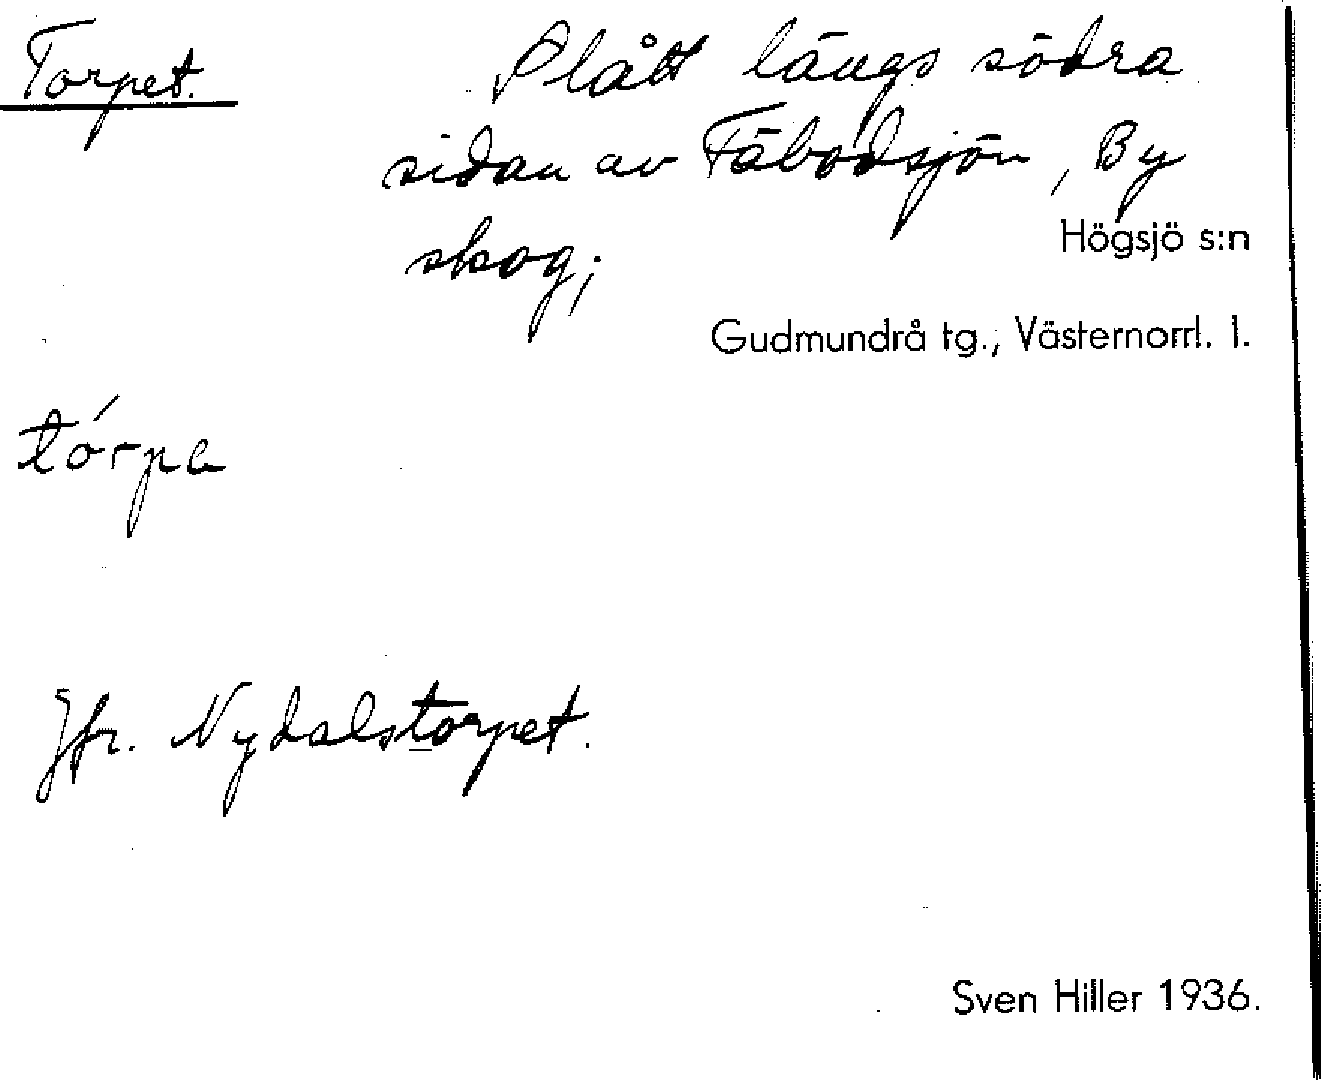 Torpet. Plått längs södra
sidan av Fäbodsjön, By
skog;
Högsjö s:n
Gudmundrå tg., Västernorrl. l.
tórpa
Jfr. Nydalstorpet.
Sven Hiller 1936.